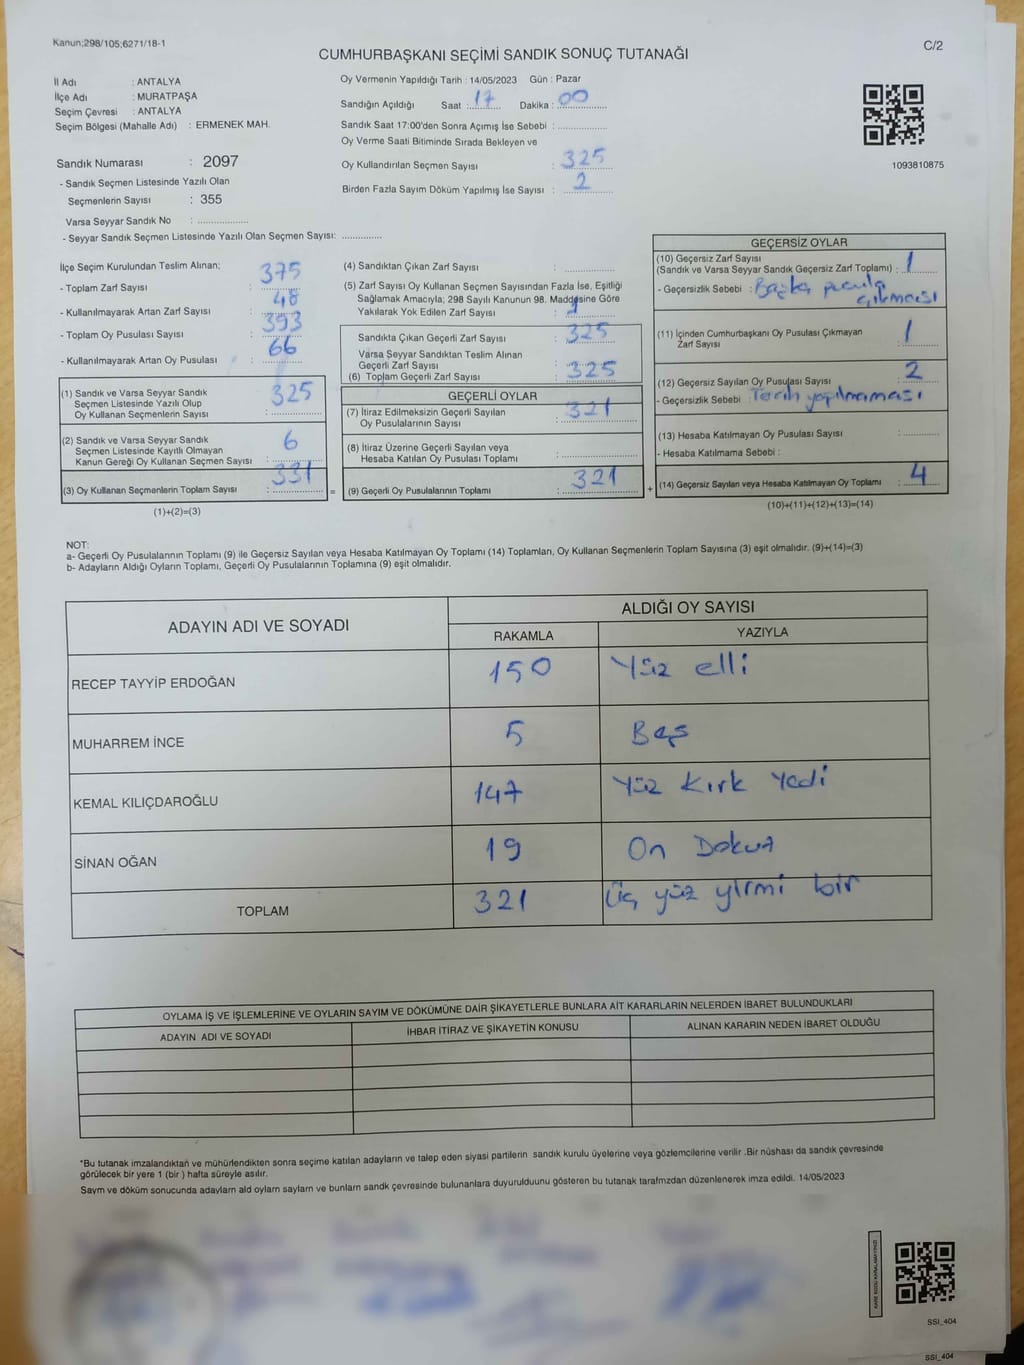 Kanun;298/105;6271/18-1
C/2
CUMHURBAŞKANI SEÇİMİ SANDIK SONUÇ TUTANAĞI
İl Adı : ANTALYA
İlçe Adı : MURATPAŞA
Seçim Çevresi : ANTALYA
Seçim Bölgesi (Mahalle Adı) : ERMENEK MAH.
Sandık Numarası : 2097
- Sandık Seçmen Listesinde Yazılı Olan
Seçmenlerin Sayısı : 355
Varsa Seyyar Sandık No : ..................
- Seyyar Sandık Seçmen Listesinde Yazılı Olan Seçmen Sayısı: ..............
Oy Vermenin Yapıldığı Tarih : 14/05/2023 Gün : Pazar
Sandığın Açıldığı Saat : 17 Dakika : 00
Sandık Saat 17:00'den Sonra Açımış İse Sebebi : ..................
Oy Verme Saati Bitiminde Sırada Bekleyen ve
Oy Kullandırılan Seçmen Sayısı : 325
Birden Fazla Sayım Döküm Yapılmış İse Sayısı : 2
1093810875
İlçe Seçim Kurulundan Teslim Alınan;
- Toplam Zarf Sayısı : 375
- Kullanılmayarak Artan Zarf Sayısı : 48
- Toplam Oy Pusulası Sayısı : 393
- Kullanılmayarak Artan Oy Pusulası : 66
(1) Sandık ve Varsa Seyyar Sandık
Seçmen Listesinde Yazılı Olup
Oy Kullanan Seçmenlerin Sayısı : 325
(2) Sandık ve Varsa Seyyar Sandık
Seçmen Listesinde Kayıtlı Olmayan
Kanun Gereği Oy Kullanan Seçmen Sayısı : 6
(3) Oy Kullanan Seçmenlerin Toplam Sayısı : 331 =
(1)+(2)=(3)
(4) Sandıktan Çıkan Zarf Sayısı : ..................
(5) Zarf Sayısı Oy Kullanan Seçmen Sayısından Fazla İse, Eşitliği
Sağlamak Amacıyla; 298 Sayılı Kanunun 98. Maddesine Göre
Yakılarak Yok Edilen Zarf Sayısı :
Sandıkta Çıkan Geçerli Zarf Sayısı : 325
Varsa Seyyar Sandıktan Teslim Alınan
Geçerli Zarf Sayısı
(6) Toplam Geçerli Zarf Sayısı : 325
GEÇERLİ OYLAR
(7) İtiraz Edilmeksizin Geçerli Sayılan
Oy Pusulalarının Sayısı : 321
(8) İtiraz Üzerine Geçerli Sayılan veya
Hesaba Katılan Oy Pusulası Toplamı : ..................
(9) Geçerli Oy Pusulalarının Toplamı : 321 +
GEÇERSİZ OYLAR
(10) Geçersiz Zarf Sayısı
(Sandık ve Varsa Seyyar Sandık Geçersiz Zarf Toplamı) : 1
- Geçersizlik Sebebi : Başka pusula
çıkmacısı
(11) İçinden Cumhurbaşkanı Oy Pusulası Çıkmayan
Zarf Sayısı : 1
(12) Geçersiz Sayılan Oy Pusulası Sayısı : 2
- Geçersizlik Sebebi : Tercih yapılmaması
(13) Hesaba Katılmayan Oy Pusulası Sayısı : ............
- Hesaba Katılmama Sebebi :
(14) Geçersiz Sayılan veya Hesaba Katılmayan Oy Toplamı : 4
(10)+(11)+(12)+(13)=(14)
NOT:
a- Geçerli Oy Pusulalarının Toplamı (9) ile Geçersiz Sayılan veya Hesaba Katılmayan Oy Toplamı (14) Toplamları, Oy Kullanan Seçmenlerin Toplam Sayısına (3) eşit olmalıdır. (9)+(14)=(3)
b- Adayların Aldığı Oyların Toplamı, Geçerli Oy Pusulalarının Toplamına (9) eşit olmalıdır.
ADAYIN ADI VE SOYADI
ALDIĞI OY SAYISI
RAKAMLA YAZIYLA
RECEP TAYYİP ERDOĞAN 150 Yüz elli
MUHARREM İNCE 5 Beş
KEMAL KILIÇDAROĞLU 147 Yüz Kırk Yedi
SİNAN OĞAN 19 On Dokuz
TOPLAM 321 Üç yüz yirmi bir
OYLAMA İŞ VE İŞLEMLERİNE VE OYLARIN SAYIM VE DÖKÜMÜNE DAİR ŞİKAYETLERLE BUNLARA AİT KARARLARIN NELERDEN İBARET BULUNDUKLARI
ADAYIN ADI VE SOYADI İHBAR İTİRAZ VE ŞİKAYETİN KONUSU ALINAN KARARIN NEDEN İBARET OLDUĞU
*Bu tutanak imzalandıktan ve mühürlendikten sonra seçime katılan adayların ve talep eden siyasi partilerin sandık kurulu üyelerine veya gözlemcilerine verilir .Bir nüshası da sandık çevresinde
görülecek bir yere 1 (bir ) hafta süreyle asılır.
Sayım ve döküm sonucunda adayların ald oyların sayları ve bunların sandk çevresinde bulunanlara duyurulduunu gösteren bu tutanak tarafmzdan düzenlenerek imza edildi. 14/05/2023
SSI_404
SSI_404